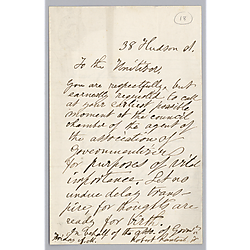 18
38 Hudson st.
To the Unitizers,
You are respectfully, but
earnestly requested to call
at your earliest possible
moment at the council
chamber of the agent of
the association of
Governmentizers
for purposes of
importance. Let no
undue delay trans-
pire, for thoughts are
ready for birth.
In behalf of the asso. of Govn
Friday